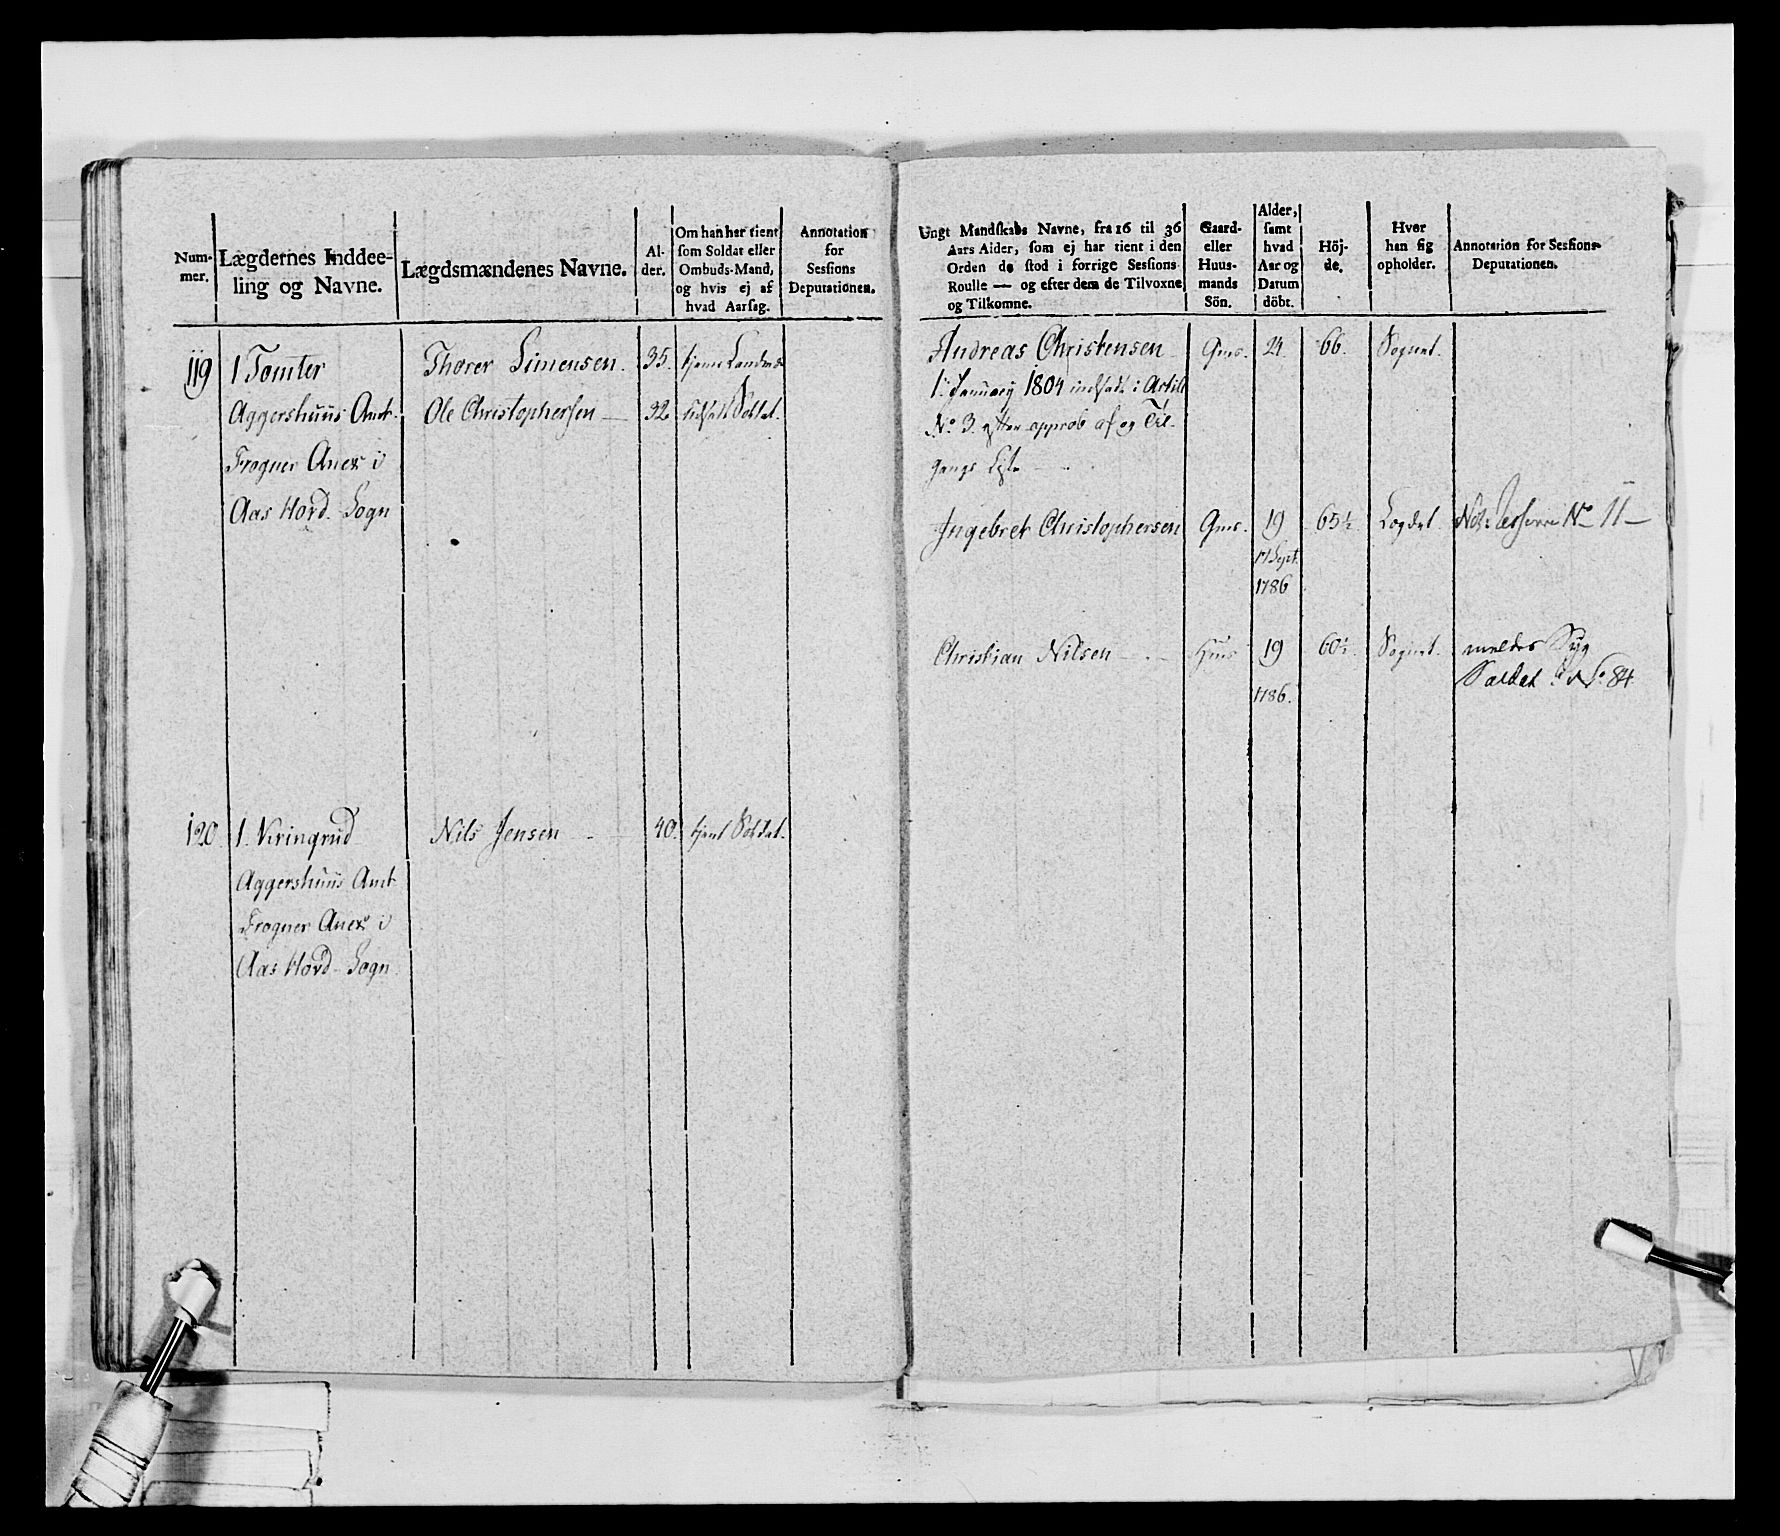 Nummer.
Lægdernes Inddeeling og Navne.
Lægdsmændenes Navne.
Alder.
Om han har tient
som Soldat eller
Ombuds-Mand,
og hvis ej af
hvad Aarsag.
Annotation
for
Sessions
Deputationen.
119
1 Tomter
Aggershuus Amt.
Frogner Anex i
Aas Hovd. Sogn
Thorer Simensen.
35.
Ole Christophersen
32
Soldat.
120
1. Kringrud
Aggershuus Amt
Frogner Anex i
Aas Hovd. Sogn
Nils Jensen
40.
tient Soldat.
Ungt Mandskabs Navne, fra 16 til 36
Aars Alder, som ej har tient i den
Orden de stod i forrige Sessions
Roulle — og efter dem de Tilvoxne
og Tilkomne.
Gaard-
eller
Huus-
mands
Sön.
Alder,
samt
hvad
Aar og
Datum
döbt.
Höj-
de.
Hvor
han sig
opholder.
Annotation for Sessions-
Deputationen.
Andreas Christensen
Gms.
24.
66.
Sognet.
1. January 1804 indsadt i Artill
No 3. efter approb af og Til-
gangs Liste
Ingebret Christophersen
Gms.
19
65½
Lægdet.
No 11
17 Sept.
1786
Christian Nilsen
Hms
19
60½.
Sognet.
meldes Syg
1786.
Soldat i No. 84